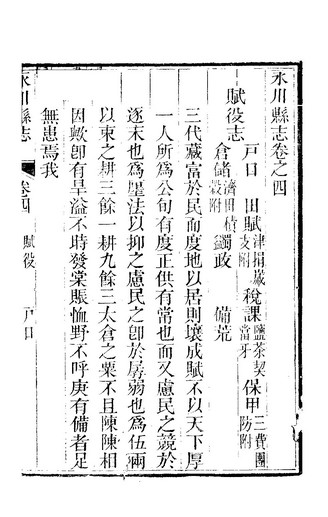 永川縣志卷之四
戶口　田賦津捐歲支附　稅課鹽茶契當牙　保甲三費團防附
倉儲濟田積穀附　蠲政　備荒
賦役志
三代藏富於民而度地以居則壤成賦不以天下厚
一人所為公旬有度正供有常也而又慮民之競於
逐末也為壓法以抑之慮民之卽於孱弱也為伍兩
以束之耕三餘一耕九餘三太倉之粟不且陳陳相
因歟卽有旱溢不時發棠賑恤野不呼庚有備者足
無患焉我
永川縣志　卷四　賦役　戶口